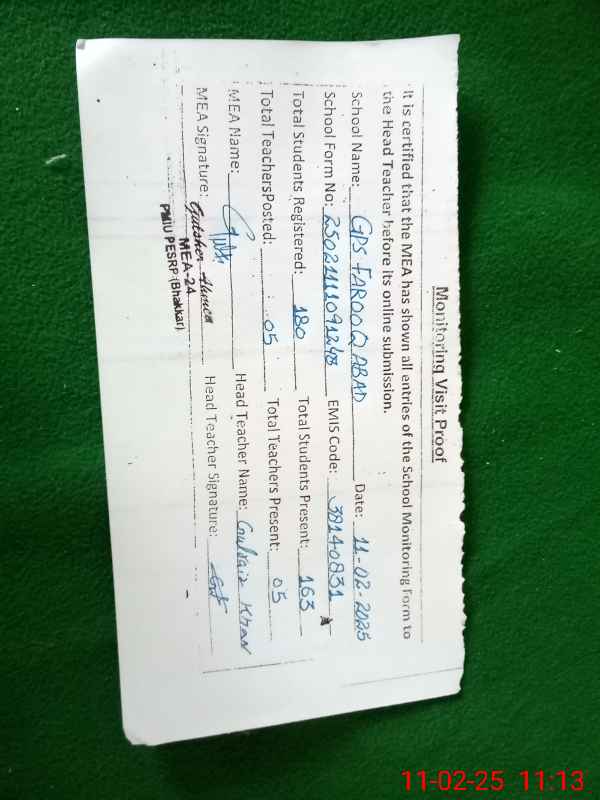 Monitoring Visit Proof
It is certified that the MEA has shown all entries of the School Monitoring Form to
the Head Teacher before its online submission.
School Name: GPS FAROOQ ABAD Date: 11-02-2025
School Form No: EMIS Code: 38140831
Total Students Registered: 180 Total Students Present: 163
Total TeachersPosted: 05 Total Teachers Present: 05
MEA Name: Head Teacher Name: Khan
MEA Signature: Head Teacher Signature:
MEA-24
PMIU PESRP (Bhakkar)
11-02-25 11:13